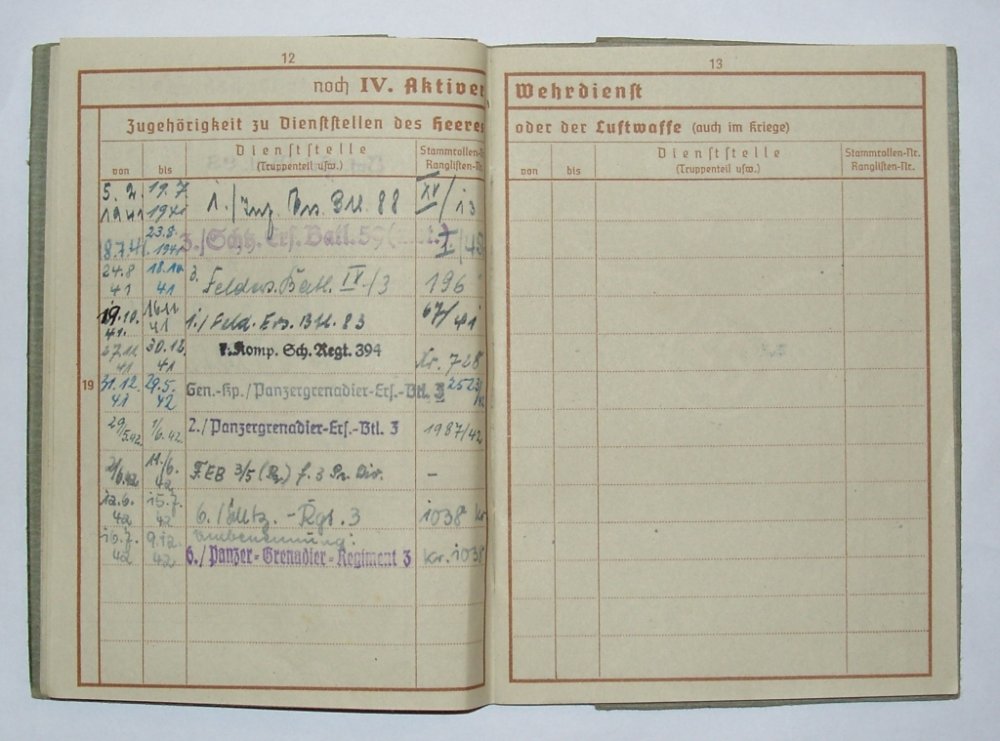 12
noch IV. Aktiver
Zugehörigkeit zu Dienststellen des Heeres
von bis Dienststelle (Truppenteil usw.) Stammrollen- Ranglisten-Nr.
5. 2. 1941 19. 7. 1941 1./ Ers. Btl. 88 XV/13
8.7.41. 23.8. 1941 3./Schtz. Ers. Batl. 59 I/45
24.8 41 18.10 41 3. Batl. IV/3 196
19.10. 41. 16.11 41 1./Feld. Ers. Btl. 83 67/41
27.11 41 30.12. 41 7. Komp. Sch. Regt. 394 Nr. 728
19 31.12. 41 29.5. 42 Gen.-Kp./Panzergrenadier-Ers.-Btl. 3 2523/42
29/5.42. 1/6.42 2./Panzergrenadier-Ers.-Btl. 3 1987/42
2/6.42 11./6. 42 F.EB 3/5 (Pz) f. 3 Pz. Div. –
12.6. 42 15.7. 42 6./Schtz.-Rgt. 3 1038 Kr
Umbenennung:
16.7. 42 9.12. 42 6./Panzer-Grenadier-Regiment 3 Kr. 1038
13
Wehrdienst
oder der Luftwaffe (auch im Kriege)
von bis Dienststelle (Truppenteil usw.) Stammrollen-Nr. Ranglisten-Nr.